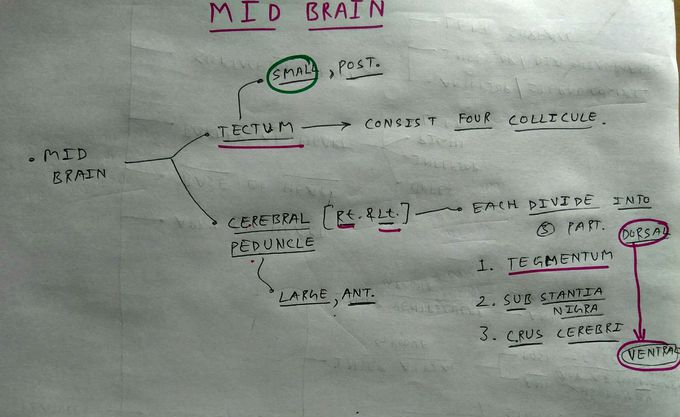 MID BRAIN
SMALL, POST.
TECTUM → CONSIST FOUR COLLICULE.
• MID
BRAIN
CEREBRAL [Rt. & Lt.] → EACH DIVIDE INTO
PEDUNCLE
③ PART.
DORSAL
1. TEGMENTUM
LARGE, ANT.
2. SUBSTANTIA
NIGRA
3. CRUS CEREBRI
VENTRAL